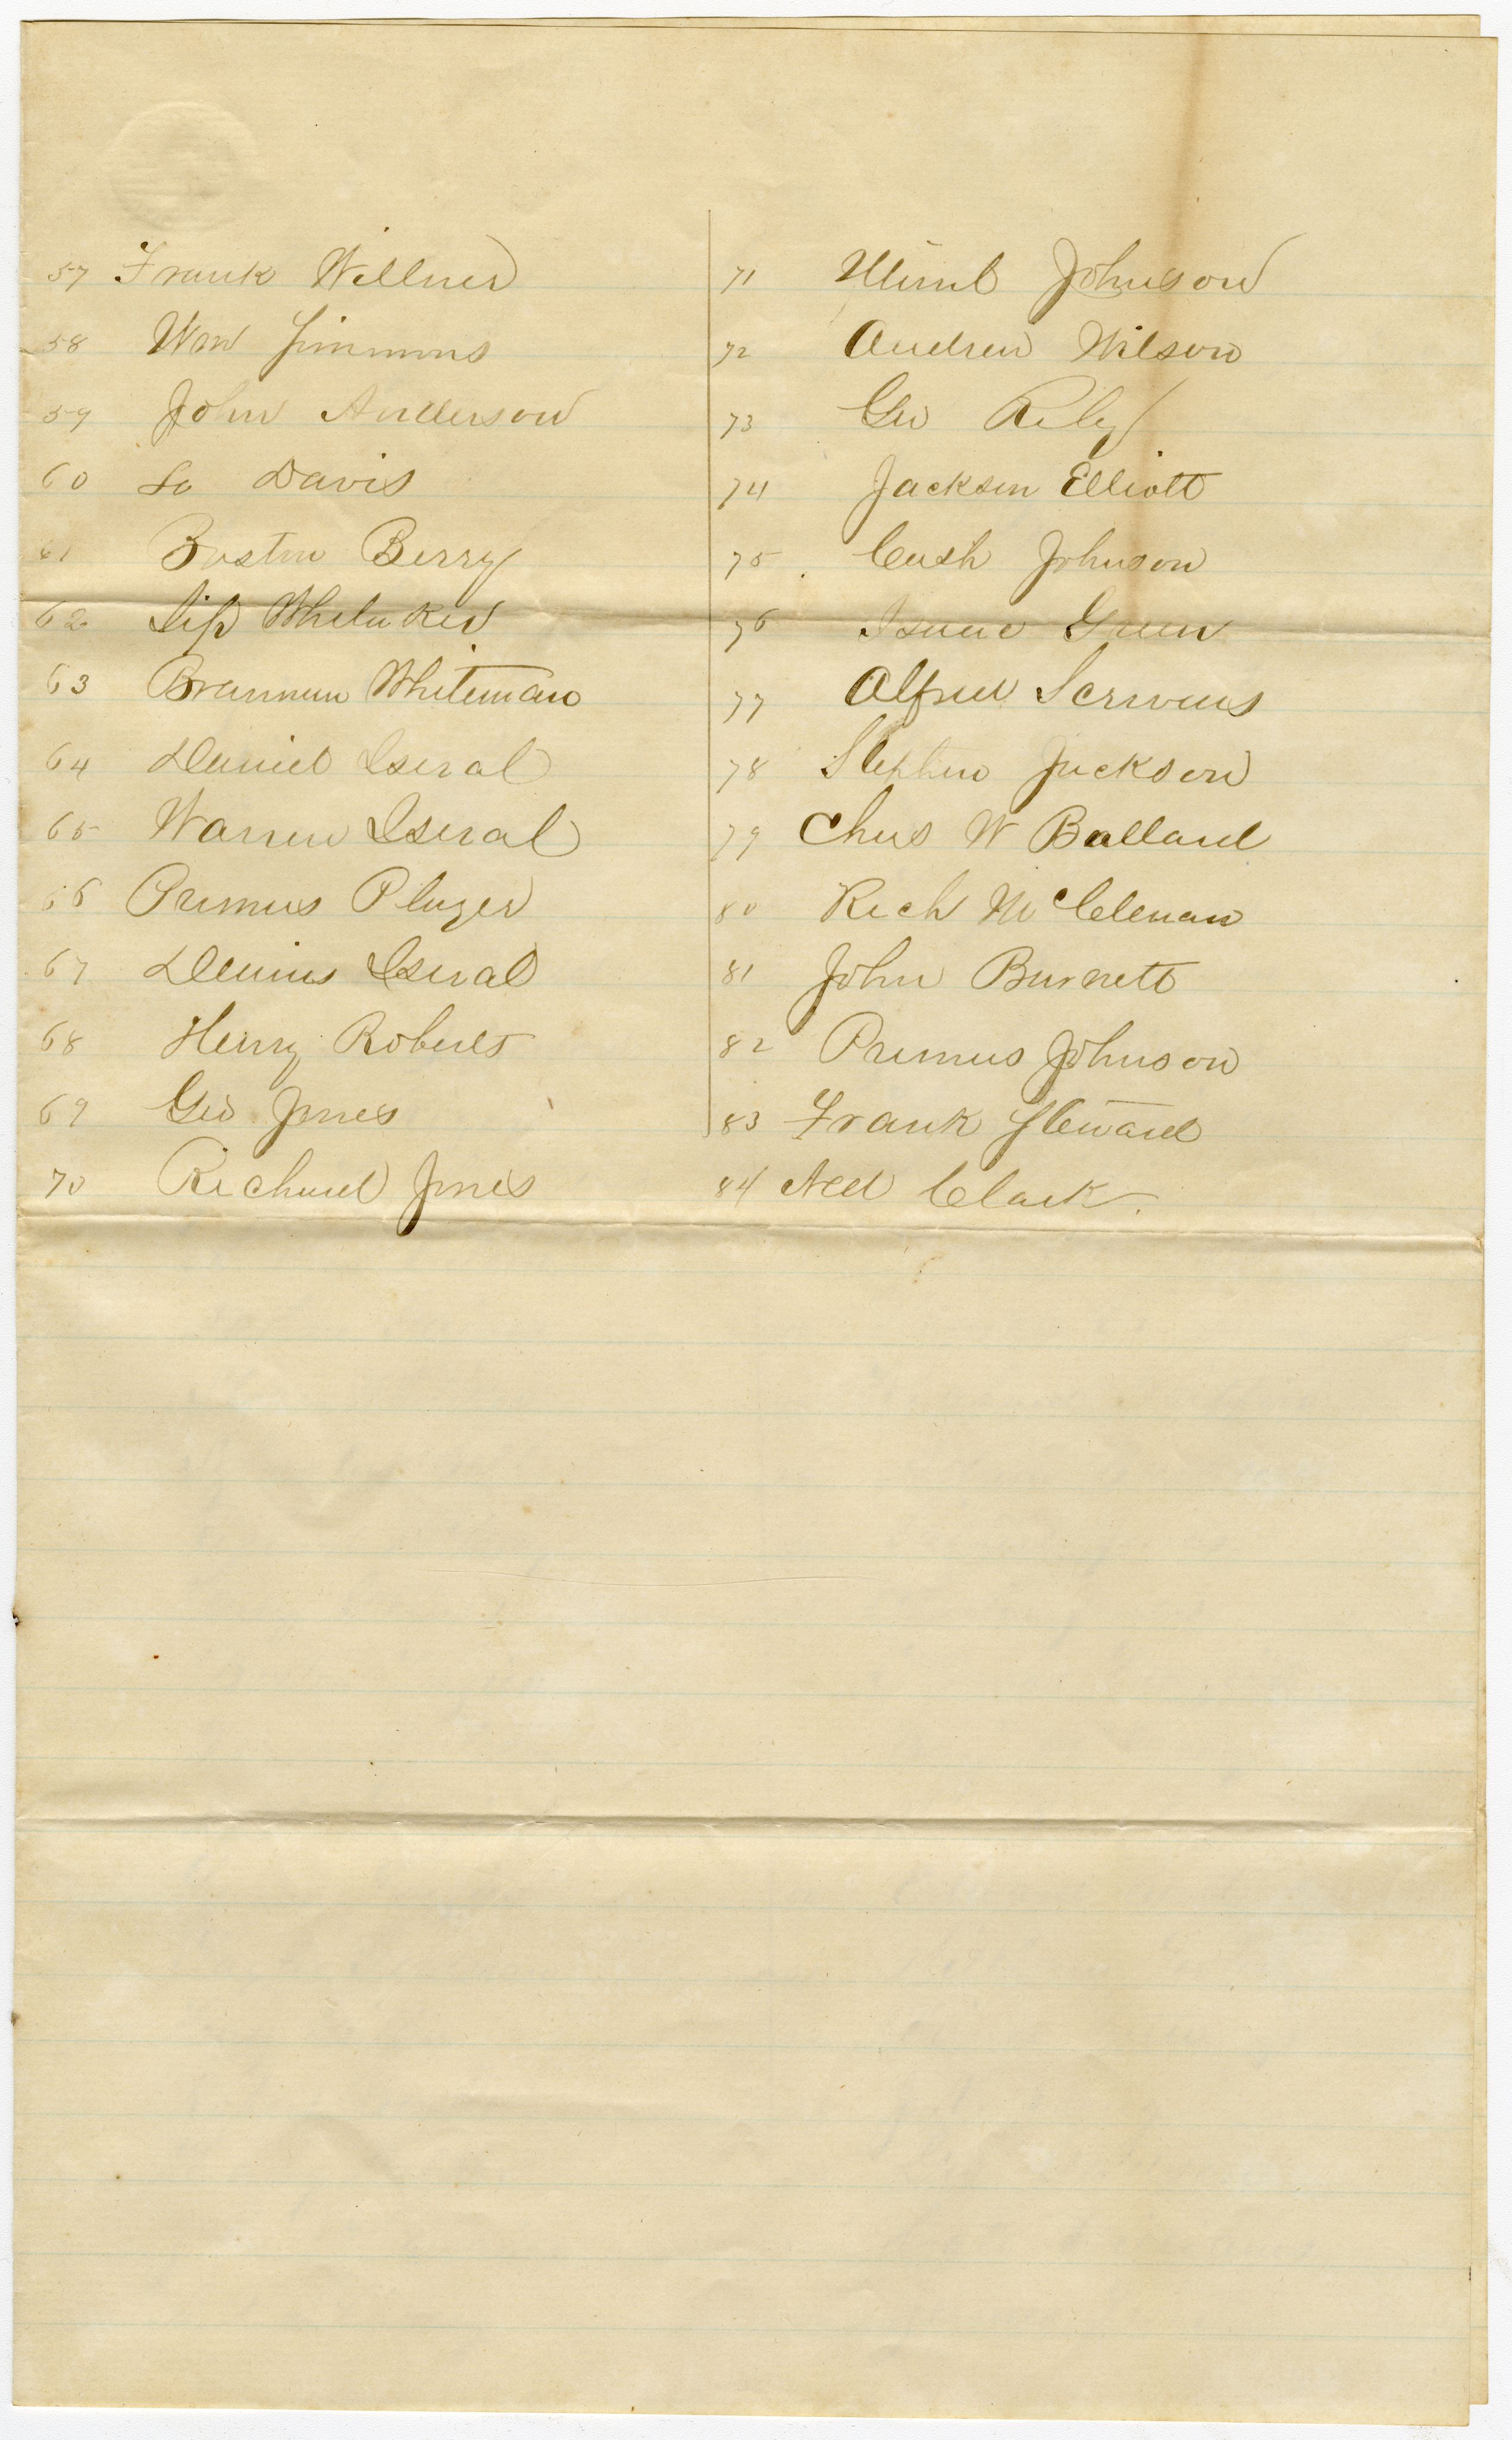 57 Frank Willner
58 Wm Simmons
59 John Anderson
60 So Davis
61 Boston Berry
62 Sip Whitaker
63 Brannum Whiteman
64 Daniel Iseral
65 Warren Iseral
66 Primus Pluger
67 Dennis Iseral
68 Henry Roberts
69 Geo Jones
70 Richard Jones
71 Johnson
72 Andrew Wilson
73 Geo Rily
74 Jackson Elliott
75 Cush Johnson
76 Isaac Green
77 Alfred Scrivens
78 Stephen Jackson
79 Chas W Ballard
80 Rich McClenan
81 John Burnett
82 Primus Johnson
83 Frank Steward
84 Ned Clark.